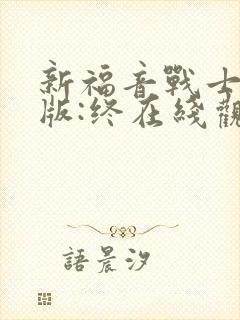 新福音戰士
版:终在綫觀
語晨汐